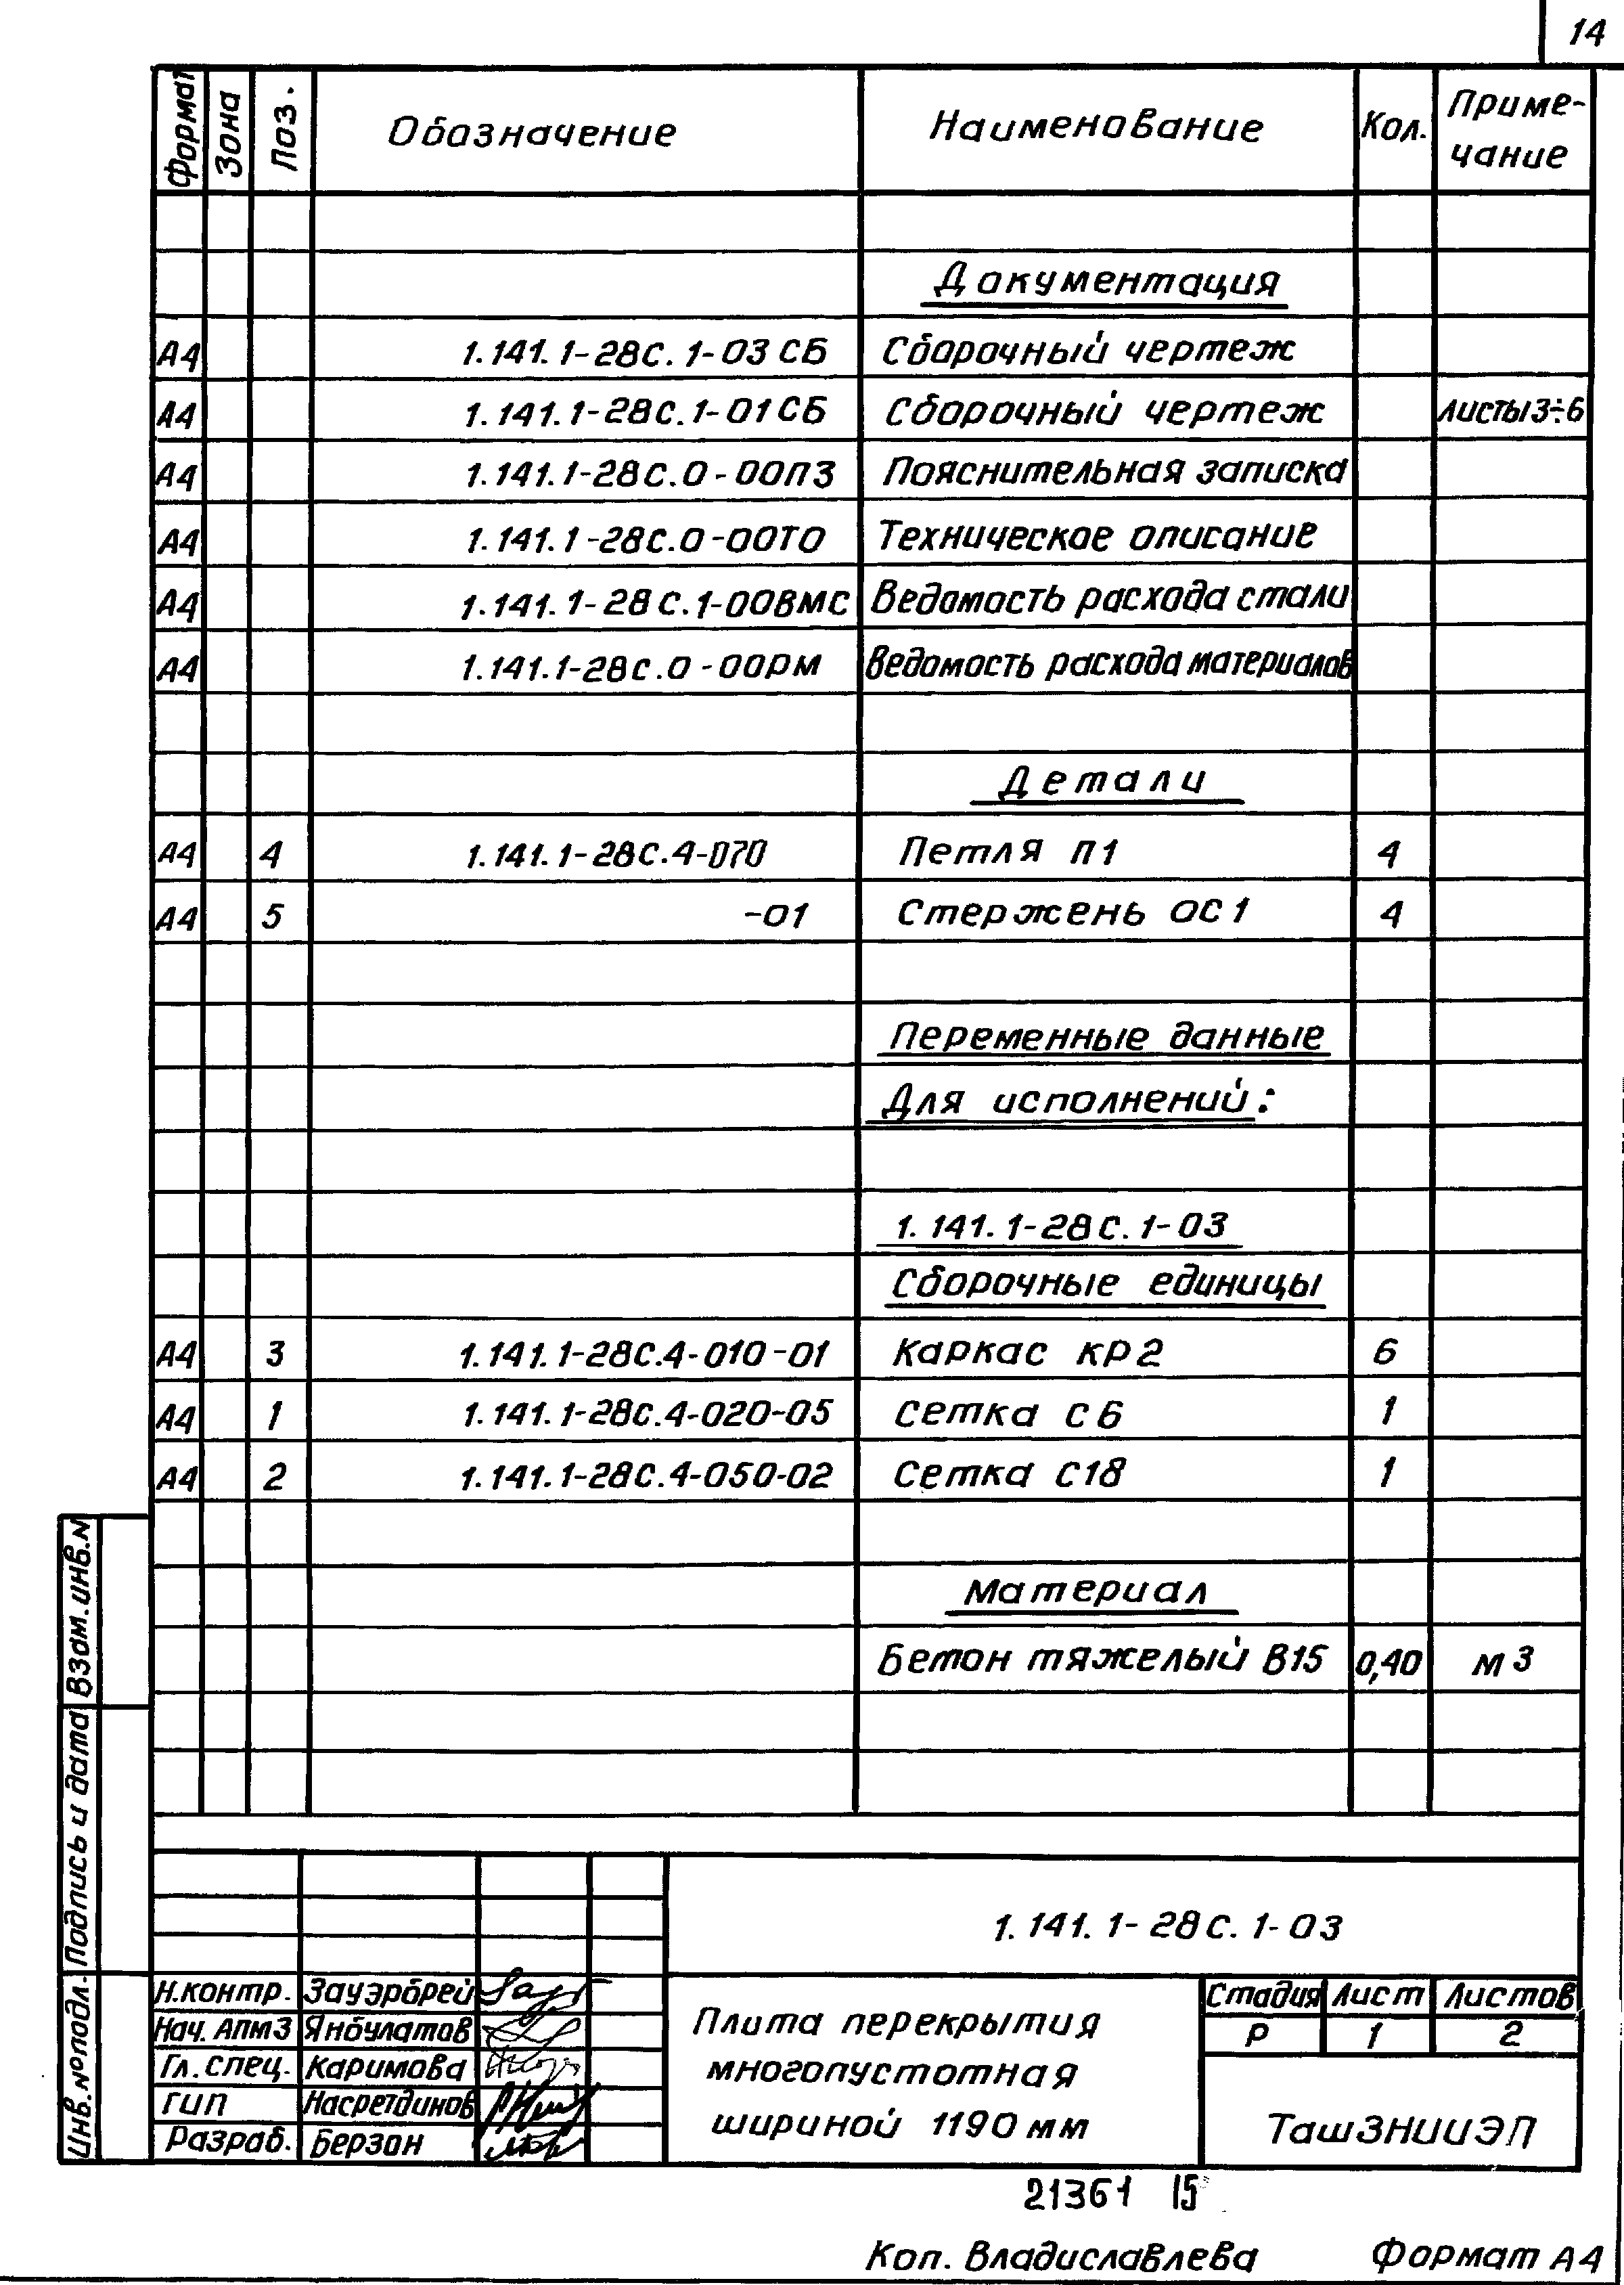 14
Формат Зона Поз. Обозначение Наименование Кол. Приме-
чание
Документация
А4 1.141.1-28С.1-03СБ Сборочный чертеж
А4 1.141.1-28С.1-01СБ Сборочный чертеж листы3÷6
А4 1.141.1-28С.0-00ПЗ Пояснительная записка
А4 1.141.1-28С.0-00ТО Техническое описание
А4 1.141.1-28С.1-00ВМС Ведомость расхода стали
А4 1.141.1-28С.0-00РМ Ведомость расхода материалов
Детали
А4 4 1.141.1-28С.4-070 Петля П1 4
А4 5 -01 Стержень ОС1 4
Переменные данные
Для исполнений:
1.141.1-28С.1-03
Сборочные единицы
А4 3 1.141.1-28С.4-010-01 Каркас КР2 6
А4 1 1.141.1-28С.4-020-05 Сетка С6 1
А4 2 1.141.1-28С.4-050-02 Сетка С18 1
Материал
Бетон тяжелый В15 0,40 м3
Взам.инв.N
Подпись и дата
Инв.№подл.
1.141.1-28С.1-03
Н.контр. Зауэрбрей
Нач.АПМ3 Янбулатов
Гл.спец. Каримова
ГИП Насретдинов
Разраб. Берзон
Плита перекрытия
многопустотная
шириной 1190мм
Стадия Лист Листов
Р 1 2
ТашЗНИИЭП
21361 15
Коп. Владиславлева Формат А4